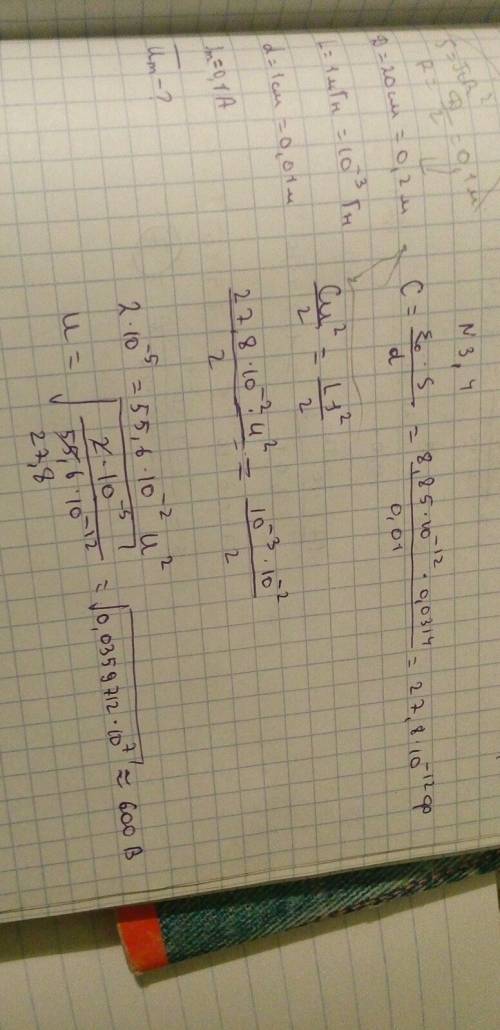 S = πR²
R = D/2 = 0,1 м
D = 20 см = 0,2 м
L = 1 мГн = 10⁻³ Гн
d = 1 см = 0,01 м
Im = 0,1 A
Um - ?
N 3,4
C = ε₀·S/d = 8,85·10⁻¹²·0,0314/0,01 = 27,8·10⁻¹² ф
Cu²/2 = LI²/2
27,8·10⁻²·u²/2 = 10⁻³·10⁻²/2
2·10⁻⁵ = 55,6·10⁻² u²
u = √(2·10⁻⁵/55,6·10⁻¹²) = √(0,0359712·10⁷) ≈ 600 В
27,8